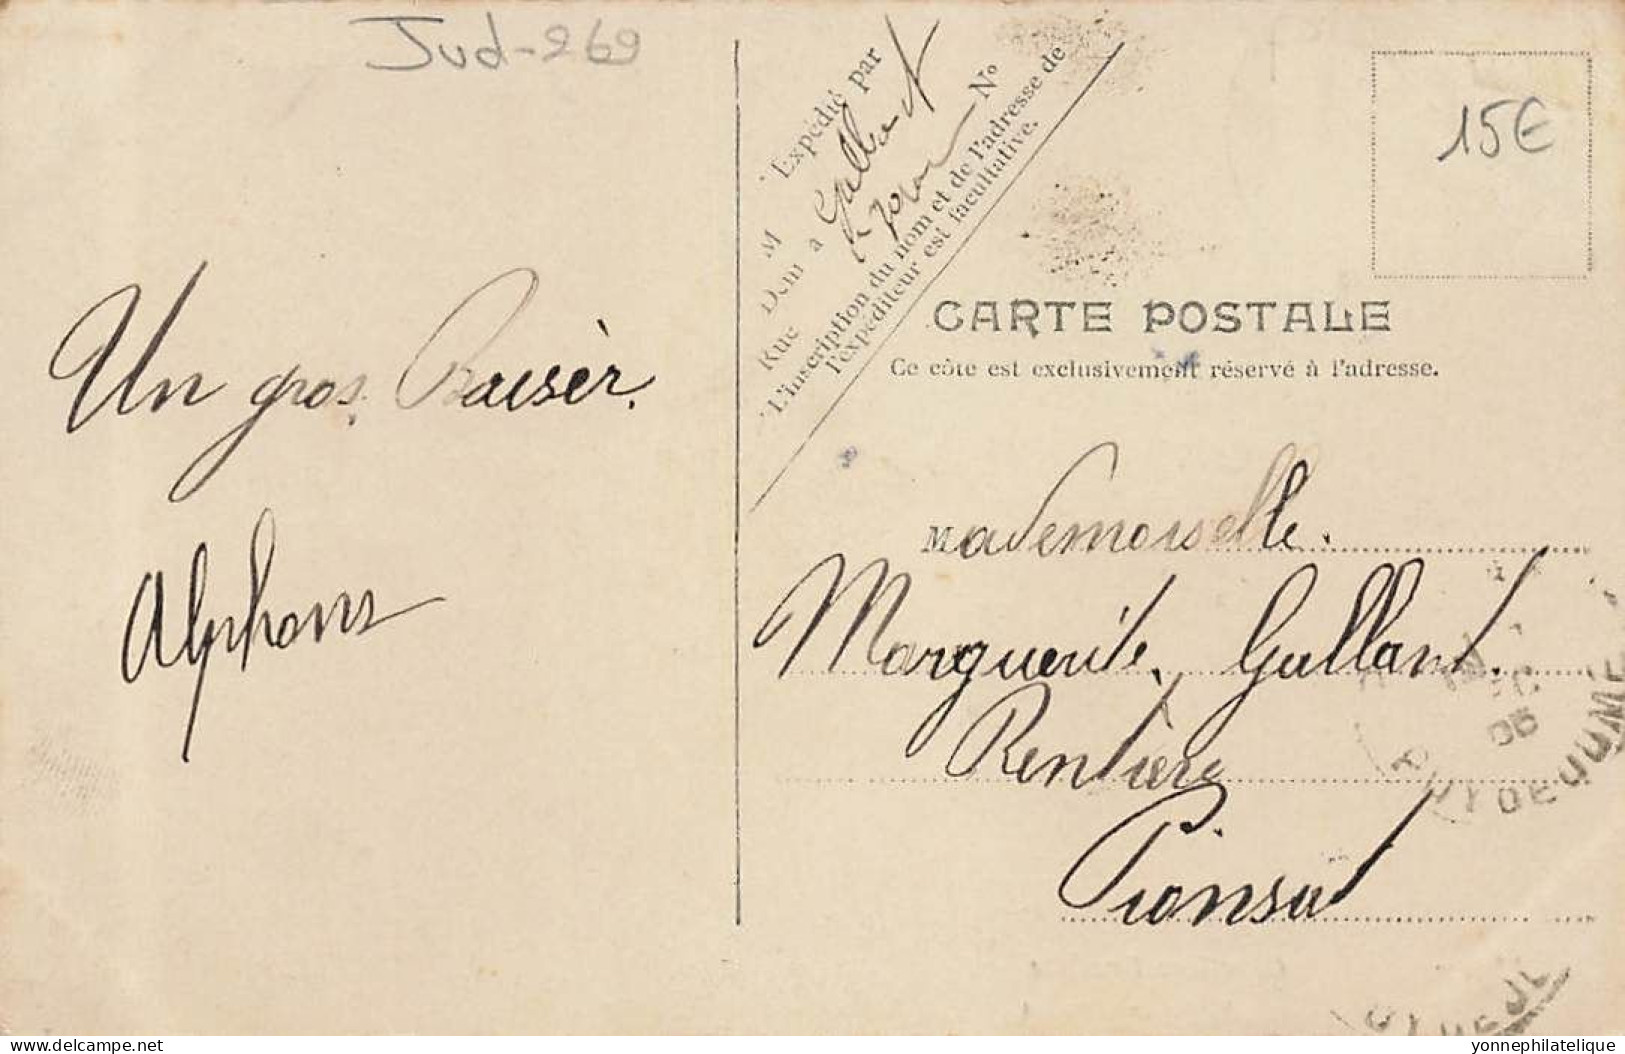 Jud-269
Un gros. Baiser.
Alphons
Expédié par
M Gallant
Dem à
Rue N°
L'inscription du nom et de l'adresse de
l'expéditeur est facultative.
15€
CARTE POSTALE
Ce côté est exclusivement réservé à l'adresse.
Mademoiselle.
Marguerite. Gallant.
Rentière
Pionsat
PUY DE DOME
delcampe.net
yonnephilatelique